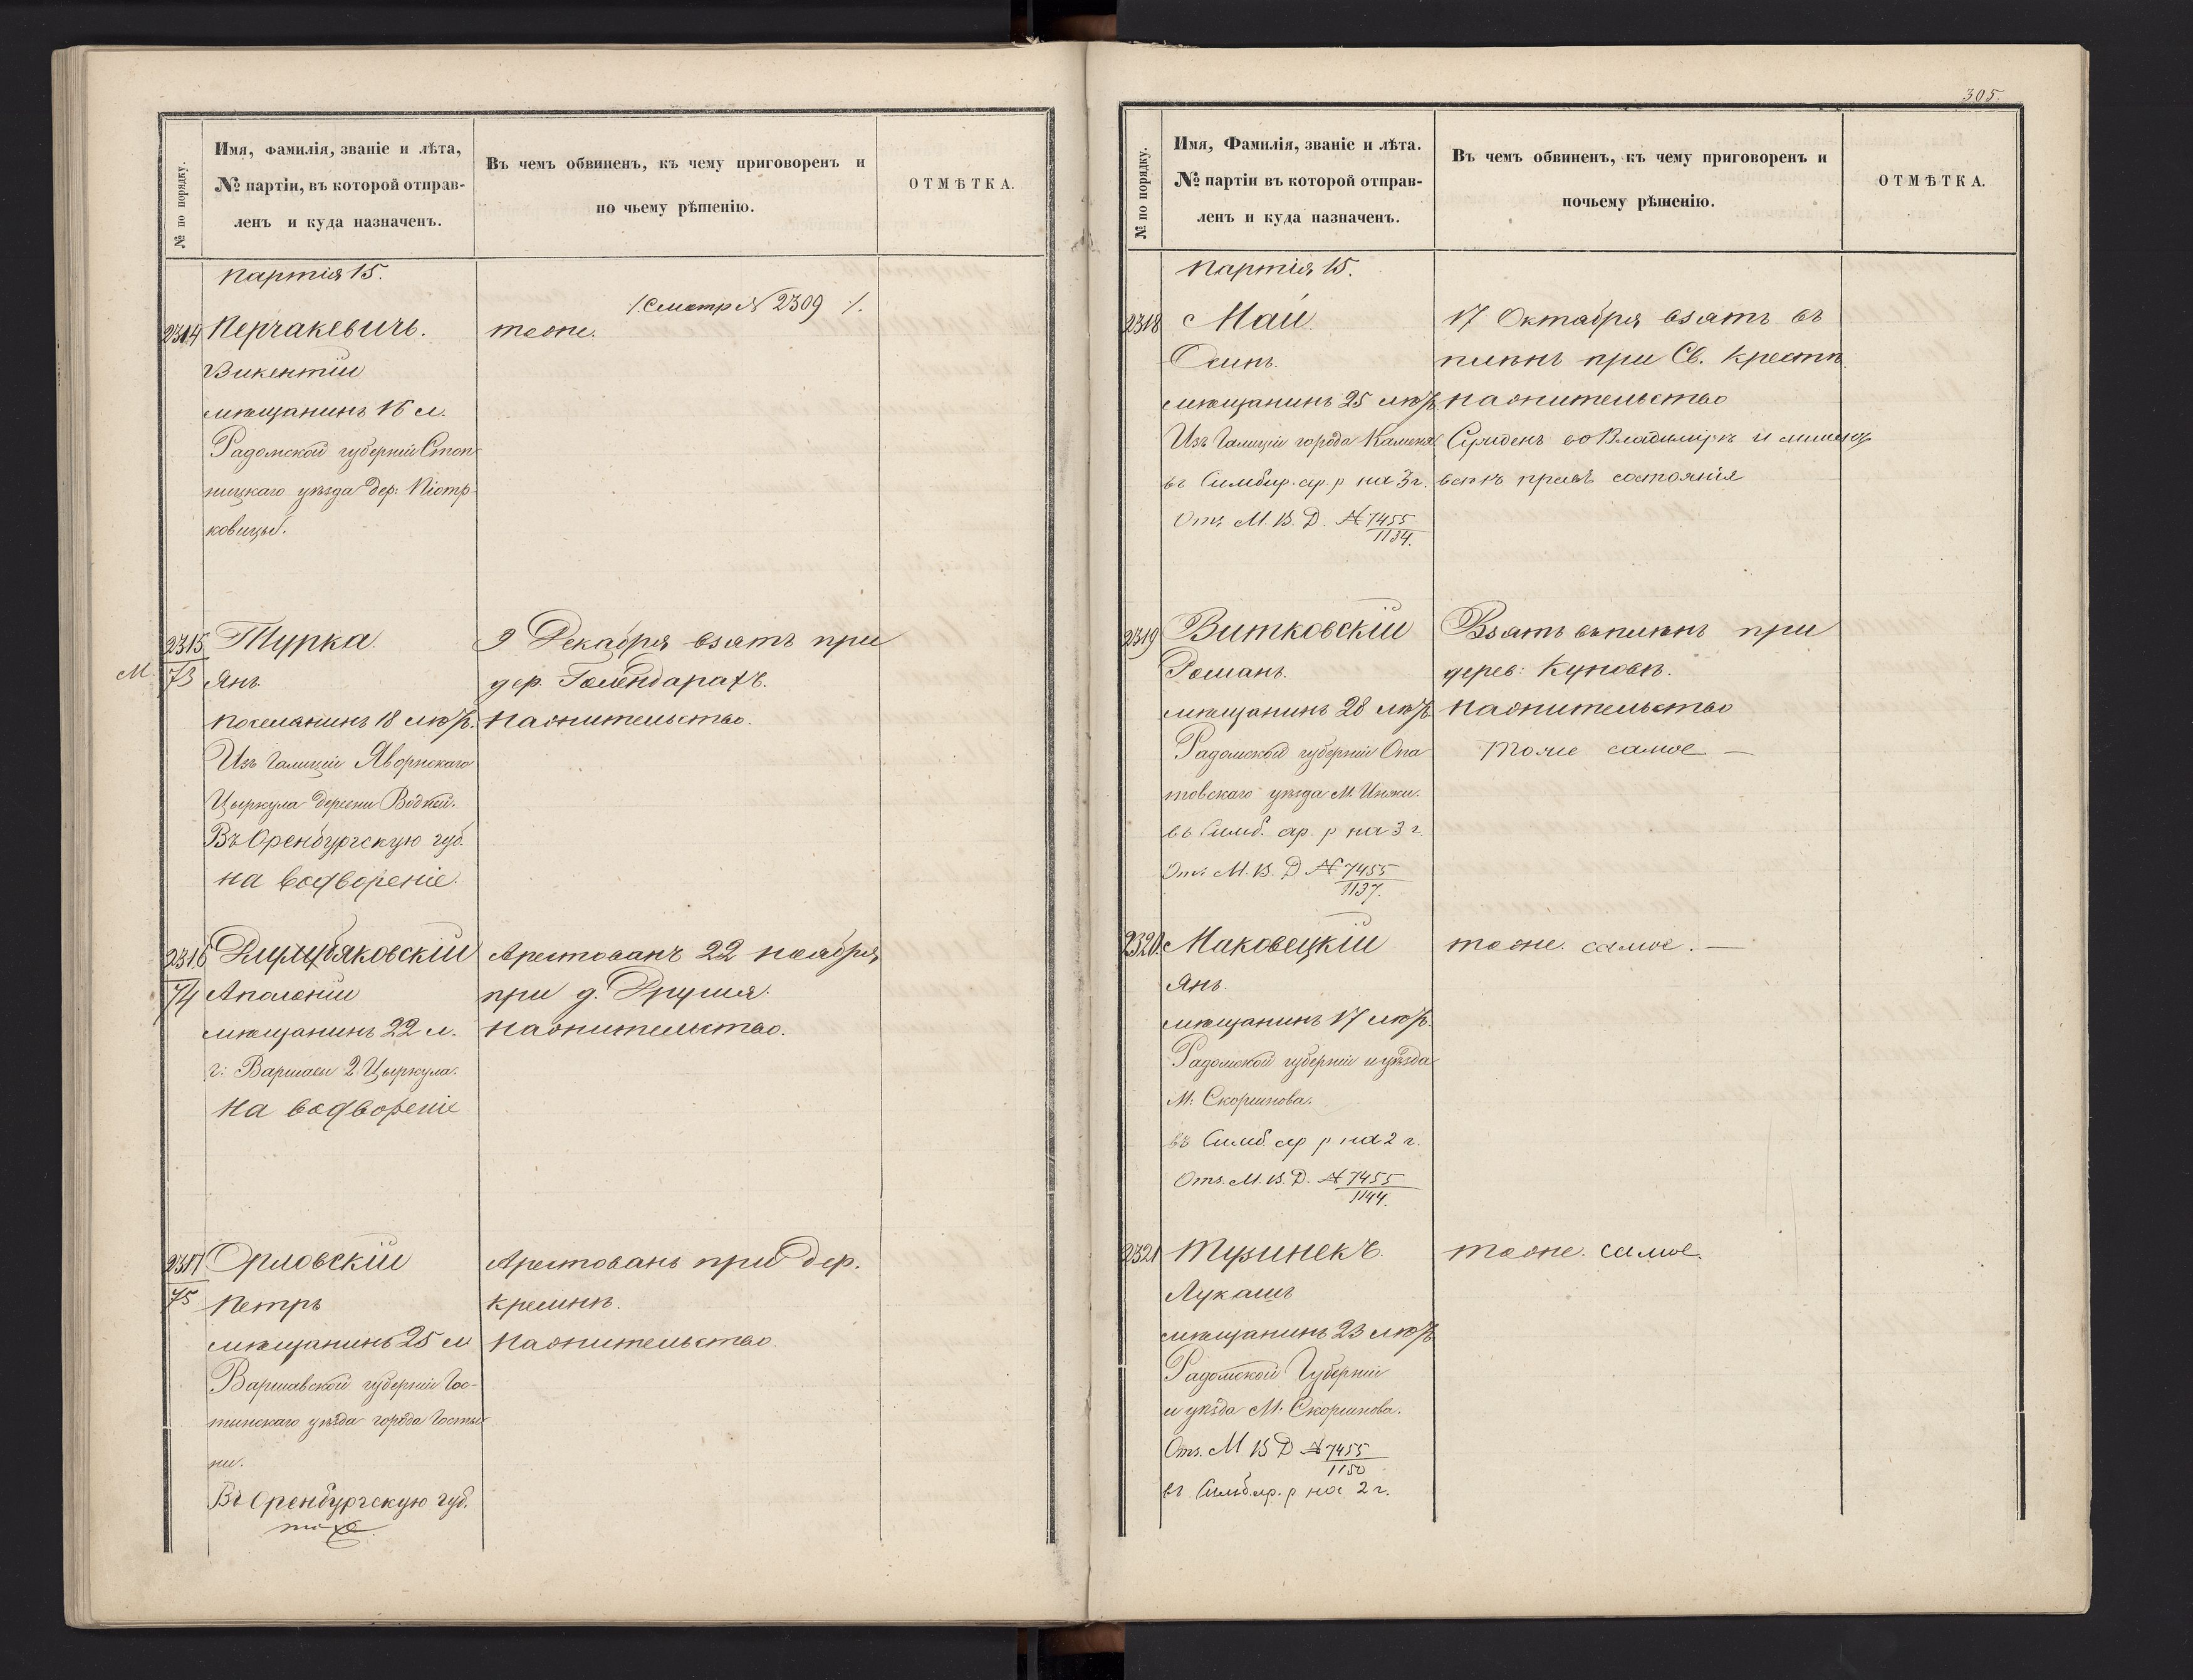 № по порядку.
Имя, Фамилія, званіе и лѣта,
№ партіи, въ которой отправ-
ленъ и куда назначенъ.
Въ чемъ обвиненъ, къ чему приговоренъ и
по чьему рѣшенію.
ОТМѢТКА.
партія 15.
/. Смотр № 2309 /.
2314 Перчакевичъ. тоже.
Викентій
мѣщанинъ 16 л.
Радомской губерніи Стоп-
ницкаго уѣзда дер: Піотр-
ковицы.
2315 Турка. 9 Декабря взятъ при
М 73 Янъ. дер.
поселянинъ 18 лѣтъ. на жительство.
Изъ Галиціи Яворнскаго
Цыркула деревни Водкай.
Въ Оренбургскую губ.
на водвореніе.
2316 Арестованъ 22 ноября
74 Аполоній при д.
мѣщанинъ 22 л. на жительство.
г: Варшавы 2 Цыркула.
на водвореніе
2317 Орловскій Арестованъ при дер.
75 Петръ Кремпѣ.
мѣщанинъ 25 л на жительство.
Варшавской губерніи Гос-
тынскаго уѣзда города Госты-
ни.
Въ Оренбургскую губ.
тоже
305.
№ по порядку.
Имя, Фамилія, званіе и лѣта.
№ партіи въ которой отправ-
ленъ и куда назначенъ.
Въ чемъ обвиненъ, къ чему приговоренъ и
почьему рѣшенію.
ОТМѢТКА.
партія 15.
2318 Май. 17 Октября взятъ въ
Осипъ. плѣнъ при Св. Крестѣ.
мѣщанинъ 25 лѣтъ на жительство
Изъ Галиціи города Каменя Сужденъ во Владимірѣ и лишенъ
въ Симбир. ар. р на 3 г. всѣхъ правъ состоянія
Отн. М. В. Д. № 7455
1134.
2319 Витковскій Взятъ въ плѣнъ при
Романъ. дерев: Куновѣ.
мѣщанинъ 28 лѣтъ на жительство
Радомской губерніи Опа- тоже самое —
товскаго уѣзда М.
въ Симб. ар. р на 3 г.
Отн. М. В. Д № 7455
1137.
2320. Маковецкій тоже. самое. —
Янъ.
мѣщанинъ 17 лѣтъ.
Радомской губерніи и уѣзда
М: Скоршнова.
въ Симб. ар р на 2 г.
Отн. М. В. Д. № 7455
1144.
2321 Тузинекъ. тоже. самое.
Лукашъ
мѣщанинъ 23 лѣтъ
Радомской Губерніи
и уѣзда М. Скоршнова.
Отн. М В Д № 7455
1150
въ Симб. ар. р на 2 г.